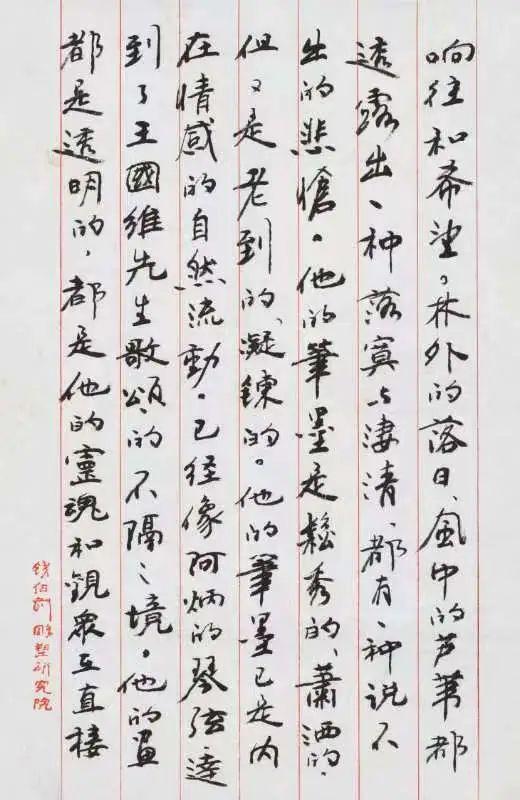 响往和希望。林外的落日、風中的芦苇都
透露出一种落寞与淒清、都有一种说不
出的悲愴。他的筆墨是鬆秀的、蕭洒的、
但又是老到的、凝鍊的。他的筆墨已是内
在情感的自然流動。已经像阿炳的琴弦達
到了王國維先生歌頌的不隔之境。他的畫
都是透明的，都是他的靈魂和觀衆互直接
钱绍武雕塑研究院